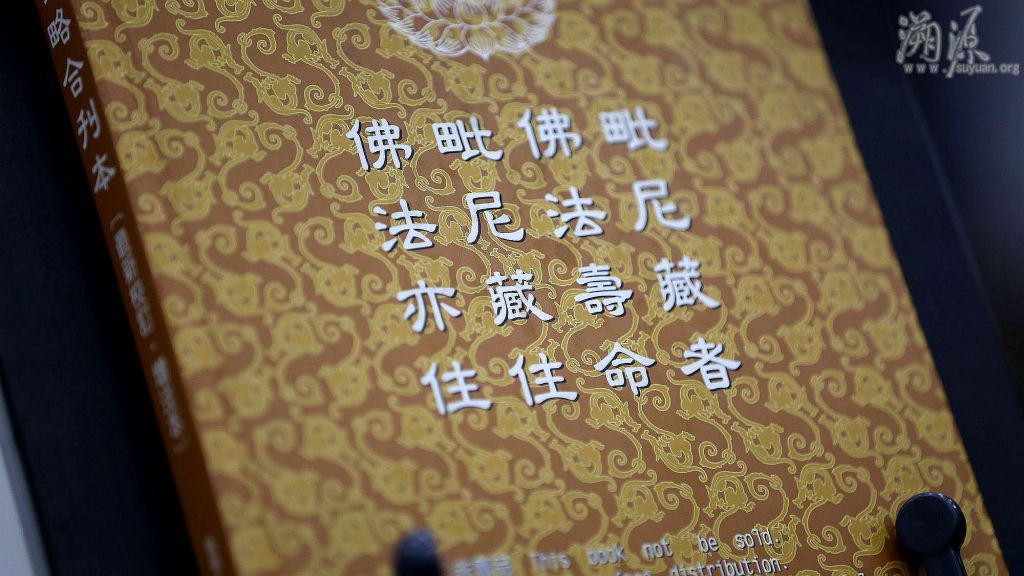 毗尼藏者
佛法壽命
毗尼藏住
佛法亦住
略合刊本
This book not be sold.
distribution.
溯源
www.suyuan.org